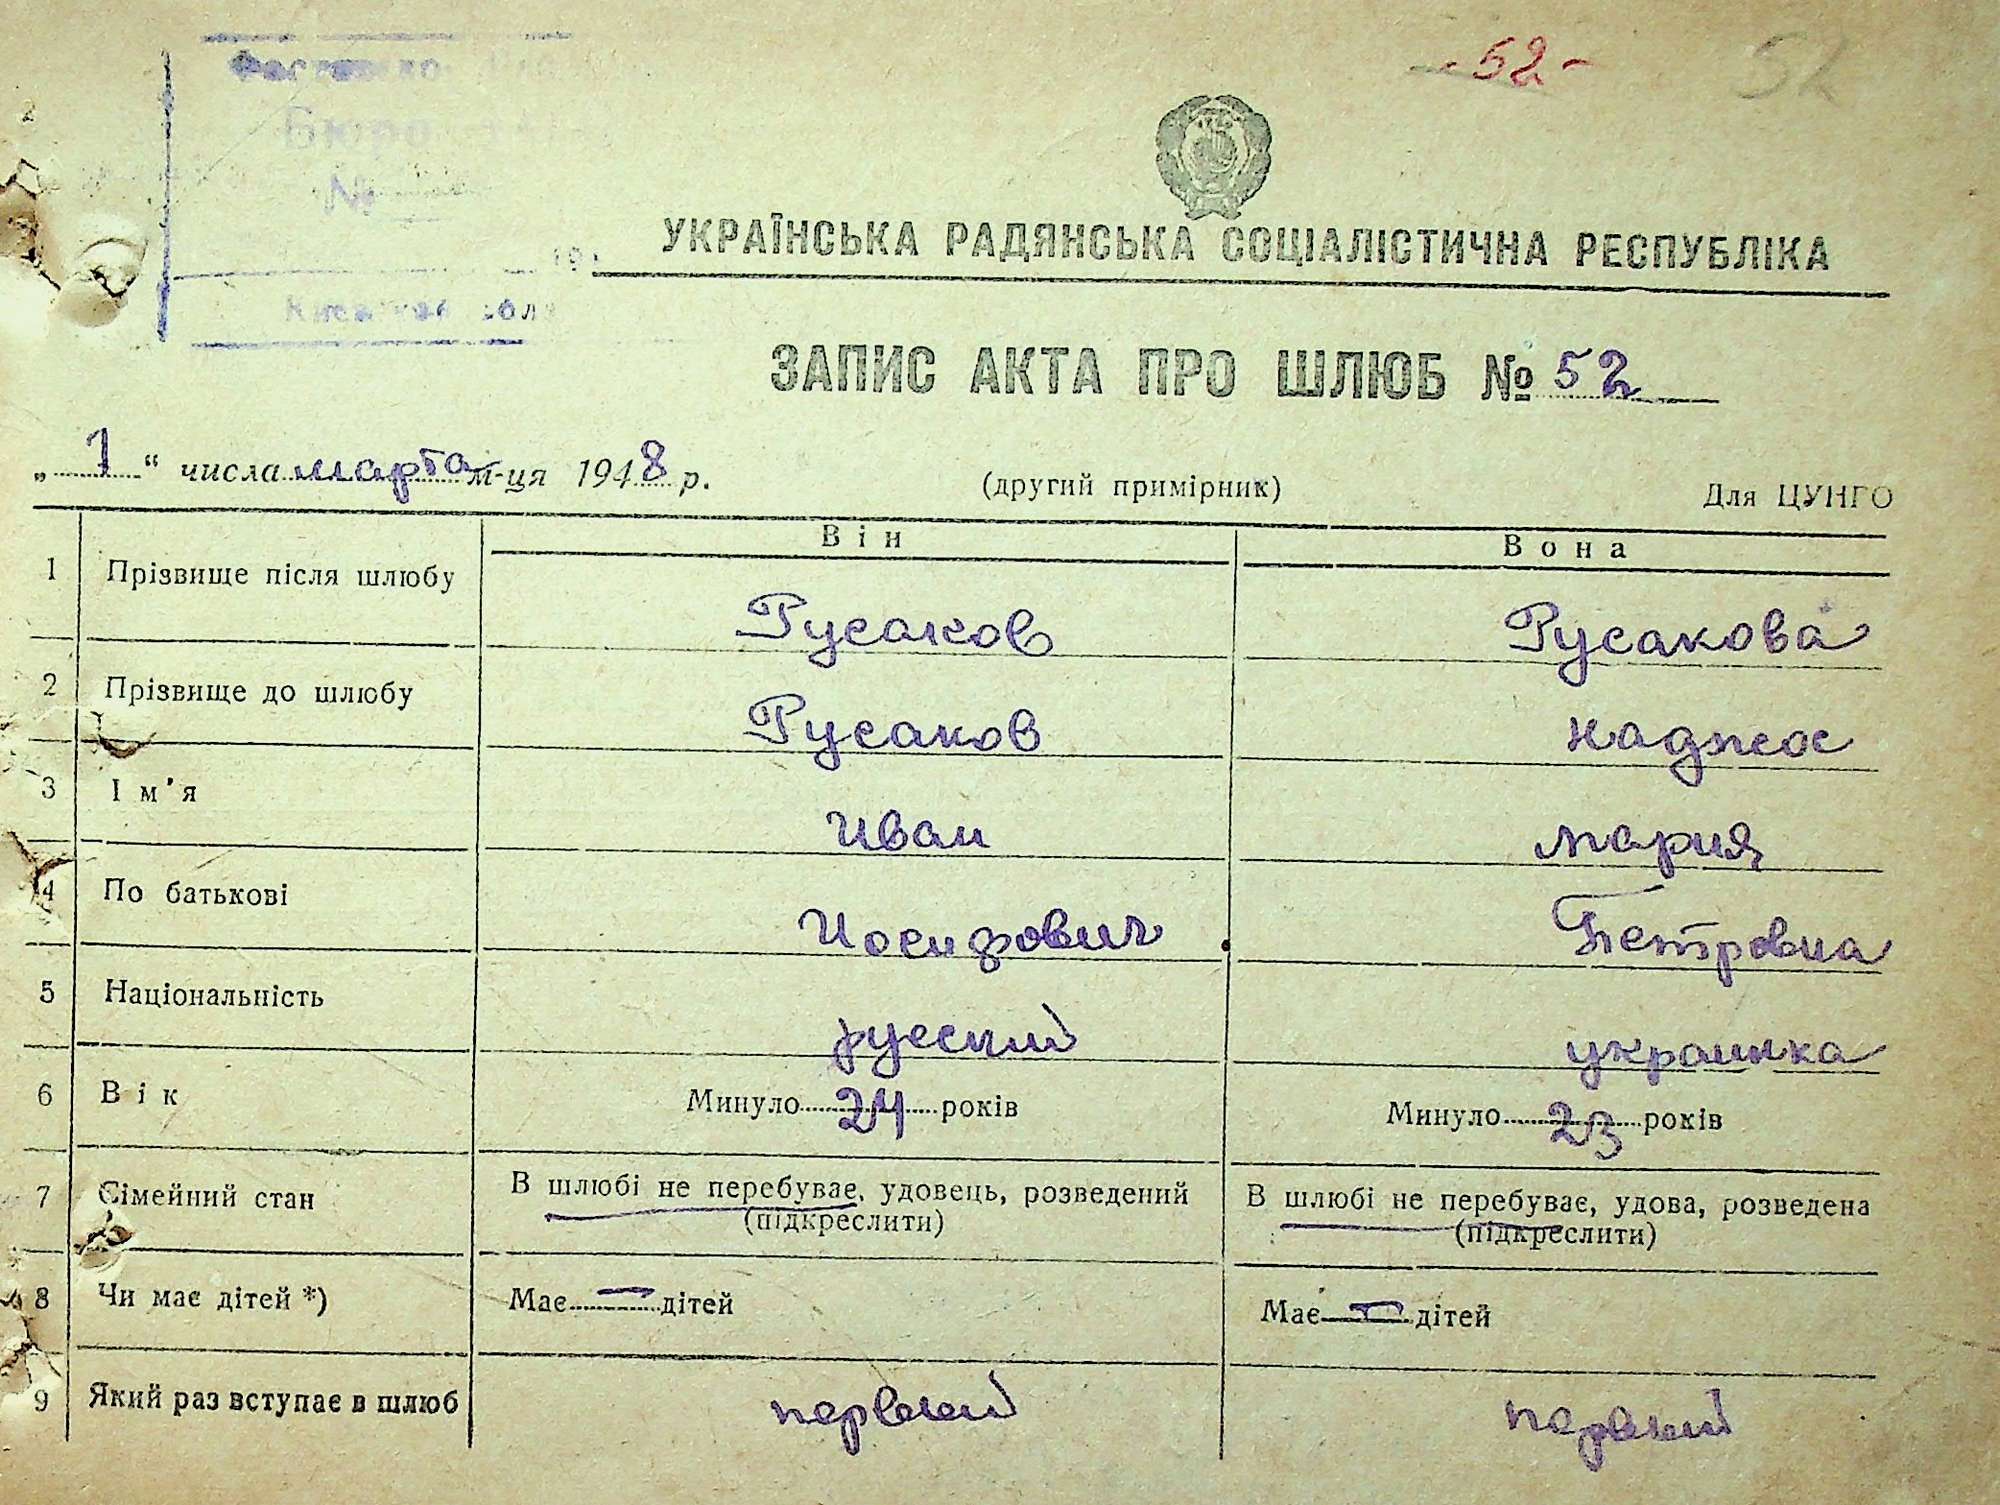 - 52 -
52
Бюро
№
УКРАЇНСЬКА РАДЯНСЬКА СОЦІАЛІСТИЧНА РЕСПУБЛІКА
ЗАПИС АКТА ПРО ШЛЮБ № 52
„ 1 “ числа марта м-ця 1948 р. (другий примірник) Для ЦУНГО
Він Вона
1 Прізвище після шлюбу Русаков Русакова
2 Прізвище до шлюбу Русаков Наджос
3 Ім'я Иван Мария
4 По батькові Иосифович Петровна
5 Національність русский украинка
6 Вік Минуло 24 років Минуло 23 років
7 Сімейний стан В шлюбі не перебуває, удовець, розведений В шлюбі не перебуває, удова, розведена
(підкреслити) (підкреслити)
8 Чи має дітей *) Має — дітей Має — дітей
9 Який раз вступає в шлюб первый первый